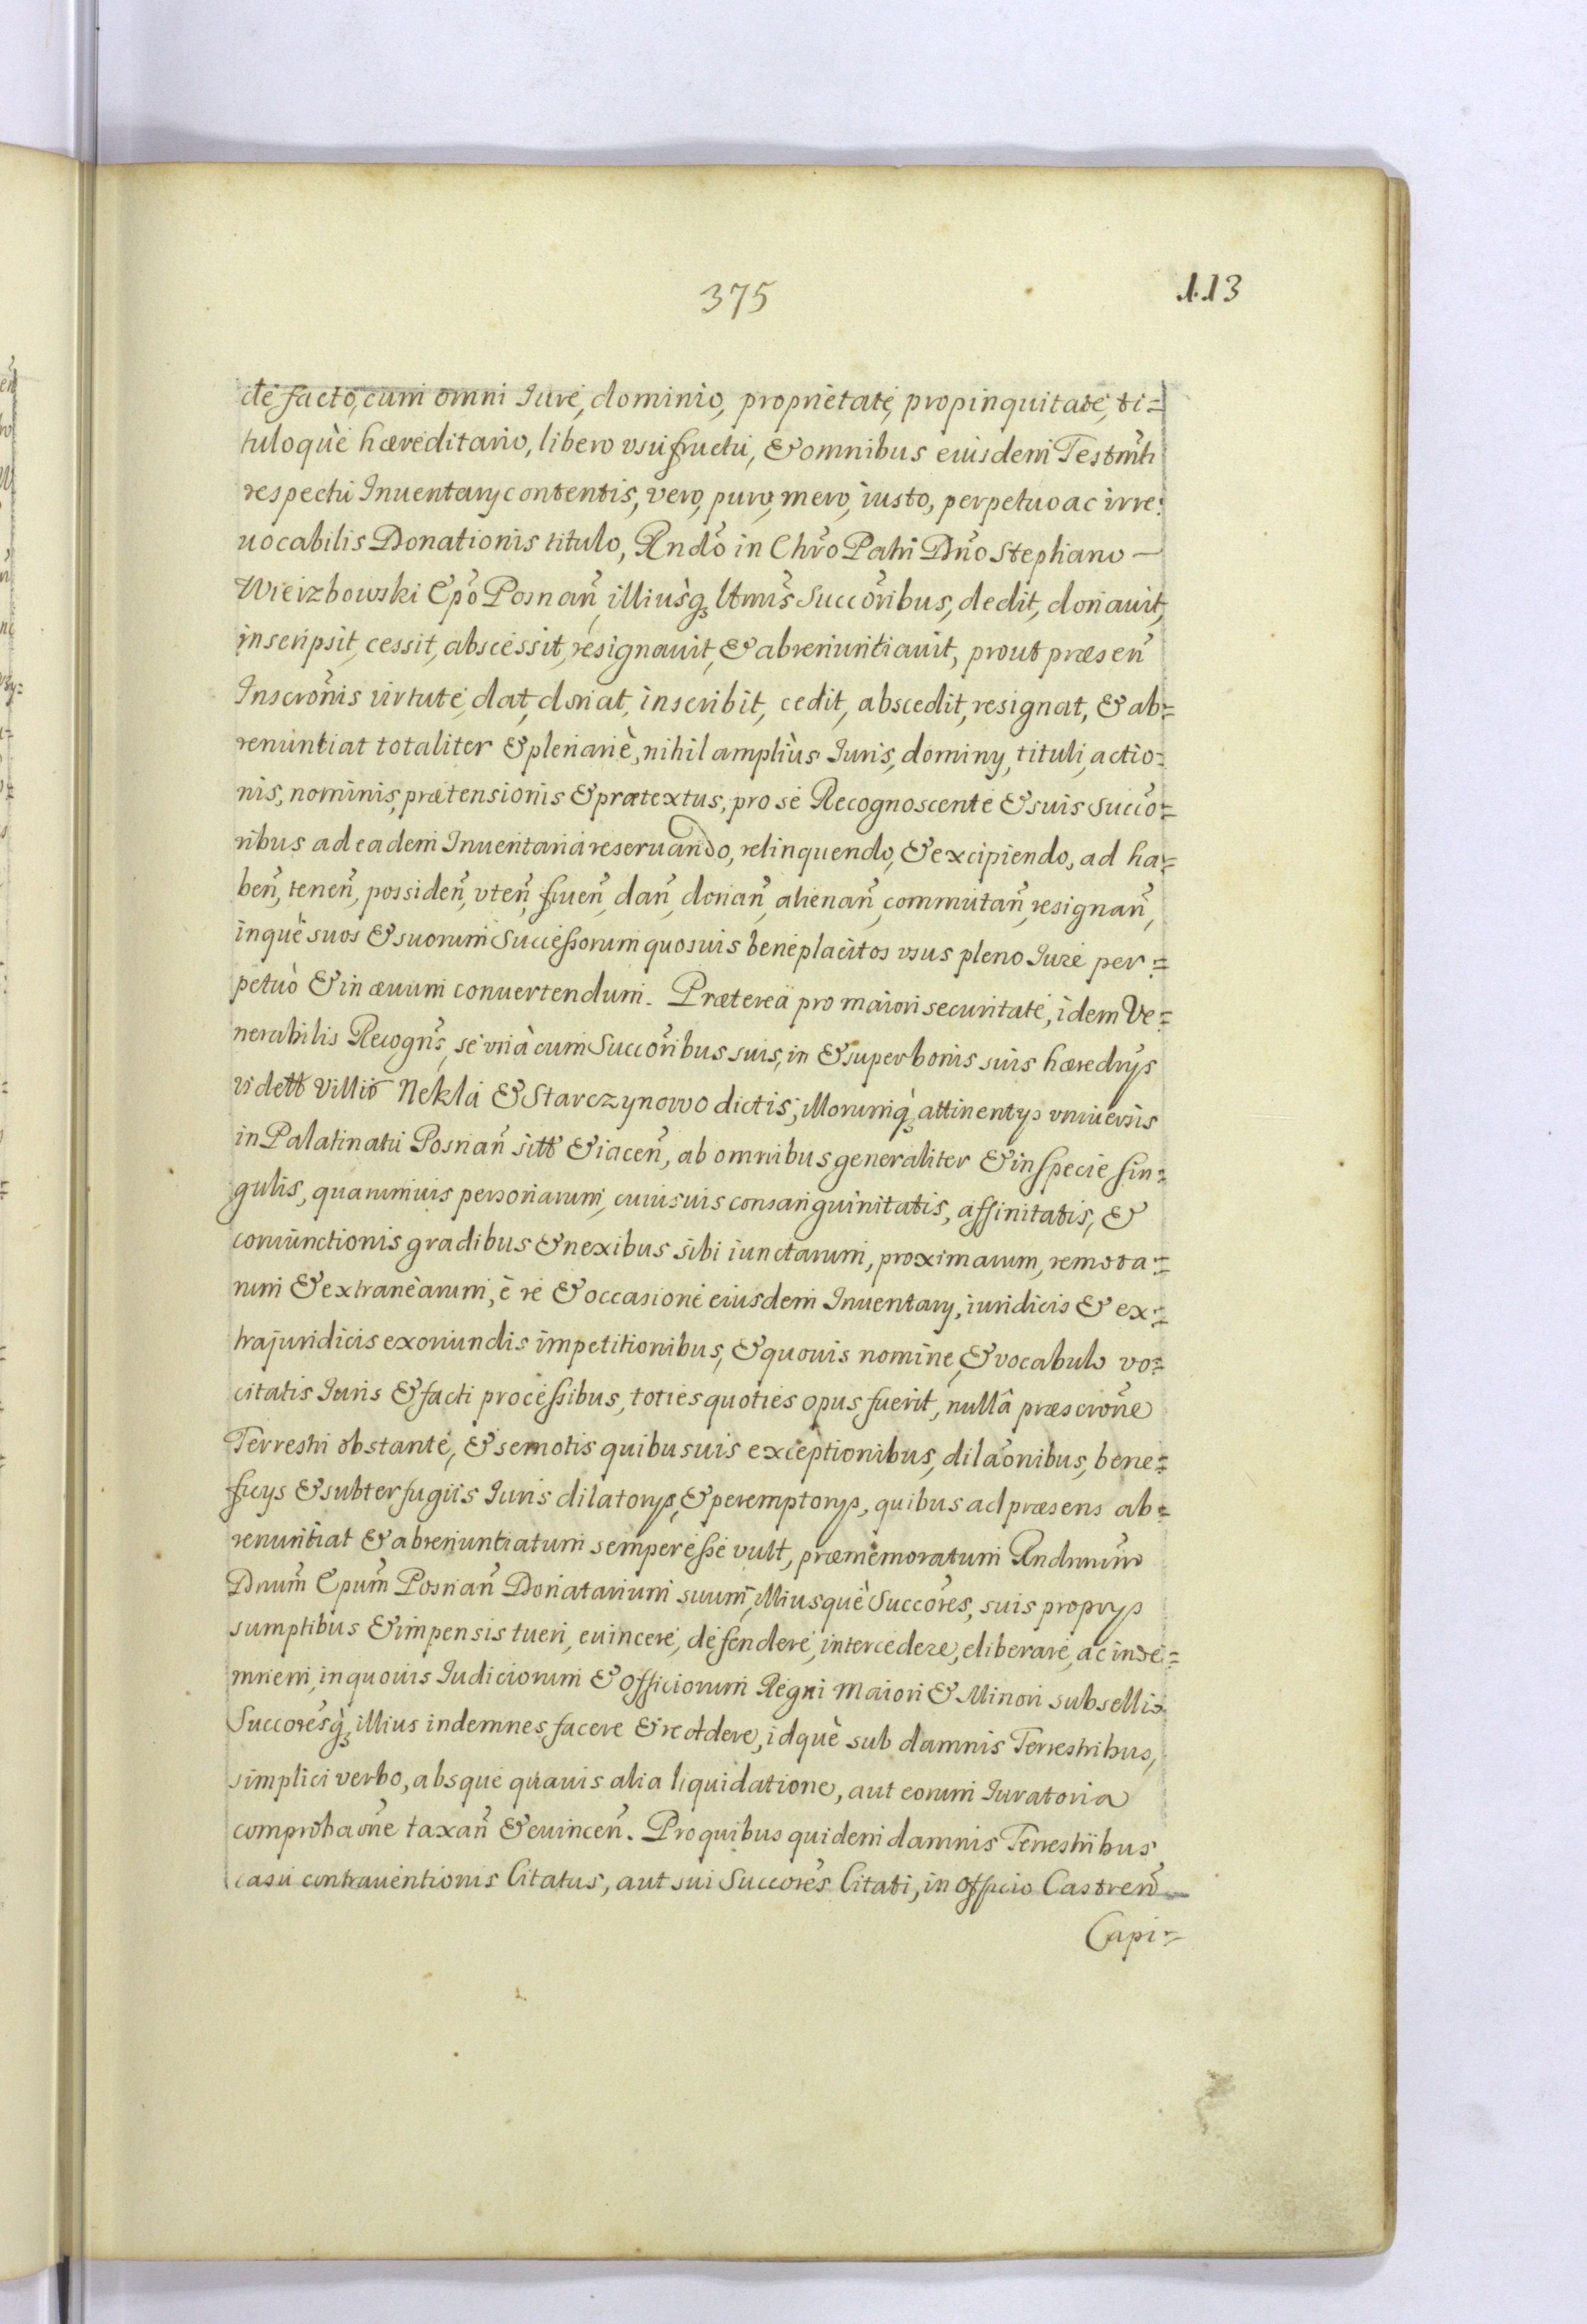 375
113
de facto, cum omni Iure, dominio, proprietate, propinquitate, ti=
tuloquè hæreditario, libero vsufructu, & omnibus eiusdem Testm̃ti
respectu Inuentarij contentis, vero, puro, mero, iusto, perpetuo ac irre:
uocabilis Donationis titulo, Rndõ in Chrõ Patri Dño Stephano —
Wieizbowski Epõ Posnañ, illiusq̀ ltmĩs Succõribus, dedit, donauit,
inscripsit, cessit, abscessit, resignauit, & abrenuntiauit, prout præseñ
Inscrõnis virtute, dat, donat, inscribit, cedit, abscedit, resignat, & ab=
renuntiat totaliter & plenariè, nihil ampliùs Iuris, dominij, tituli, actio=
nis, nominis, prætensionis & prætextus, pro se Recognoscente & suis Succõ=
ribus ad eadem Inuentaria reseruando, relinquendo, & excipiendo, ad ha=
beñ, teneñ, possideñ, vteñ, frueñ, dañ, donañ, alienañ, commutañ, resignañ,
inquè suos & suorum Successorum quosuis beneplacitos vsus pleno Iure per=
petuò & in æuum conuertendum. Prætereà pro maiori securitate, idem Ve=
nerabilis Recogñs, se vnà cum Succõribus suis, in & super bonis suis hæredijs
vidett Villis Nekla & Starczynowo dictis, illorumq̀ attinentijs vniuersis
in Palatinatu Posnañ sitt & iaceñ, ab omnibus generaliter & in specie sin=
gulis, quarumuis personarum, cuiusuis consanguinitatis, affinitatis, &
coniunctionis gradibus & nexibus sibi iunctarum, proximarum, remota=
rum & extranearum, è re & occasione eiusdem Inuentarij, iuridicis & ex=
trajuridicis exoriundis impetitionibus, & quouis nomine, & vocabulo vo=
citatis Iuris & facti processibus, toties quoties opus fuerit, nullâ præscrõne
Terrestri obstante, & semotis quibusuis exceptionibus, dilãonibus, bene=
ficijs & subterfugiis Iuris dilatorijs, & peremptorijs, quibus ad præsens ab=
renuntiat & abrenuntiatum semper esse vult, præmemoratum Rndmũm
Dnum̃ Epum̃ Posnañ Donatarium suum, illiusquè Succõres, suis proprijs
sumptibus & impensis tueri, euincere, defendere, intercedere, eliberare, ac inde=
mnem, in quouis Iudiciorum & Officiorum Regni Maiori & Minori subsellio
Succõresq̀ illius indemnes facere & reddere, idquè sub damnis Terrestribus,
simplici verbo, absque quauis alia liquidatione, aut eorum Iuratoria
comprobãone taxañ & euinceñ. Pro quibus quidem damnis Terrestribus
casu contrauentionis Citatus, aut sui Succõres Citati, in Officio Castreñ
Capi=